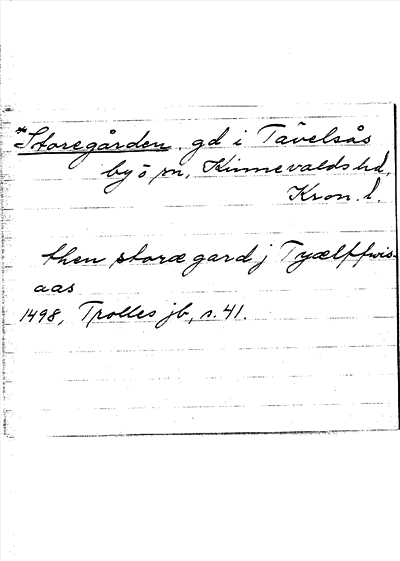 *Storegården, gd i Tävelsås
by o sn, Kinnevalds hd,
Kron. l.
then storæ gard j Tyælffwis-
aas
1498, Trolles jb, s. 41.